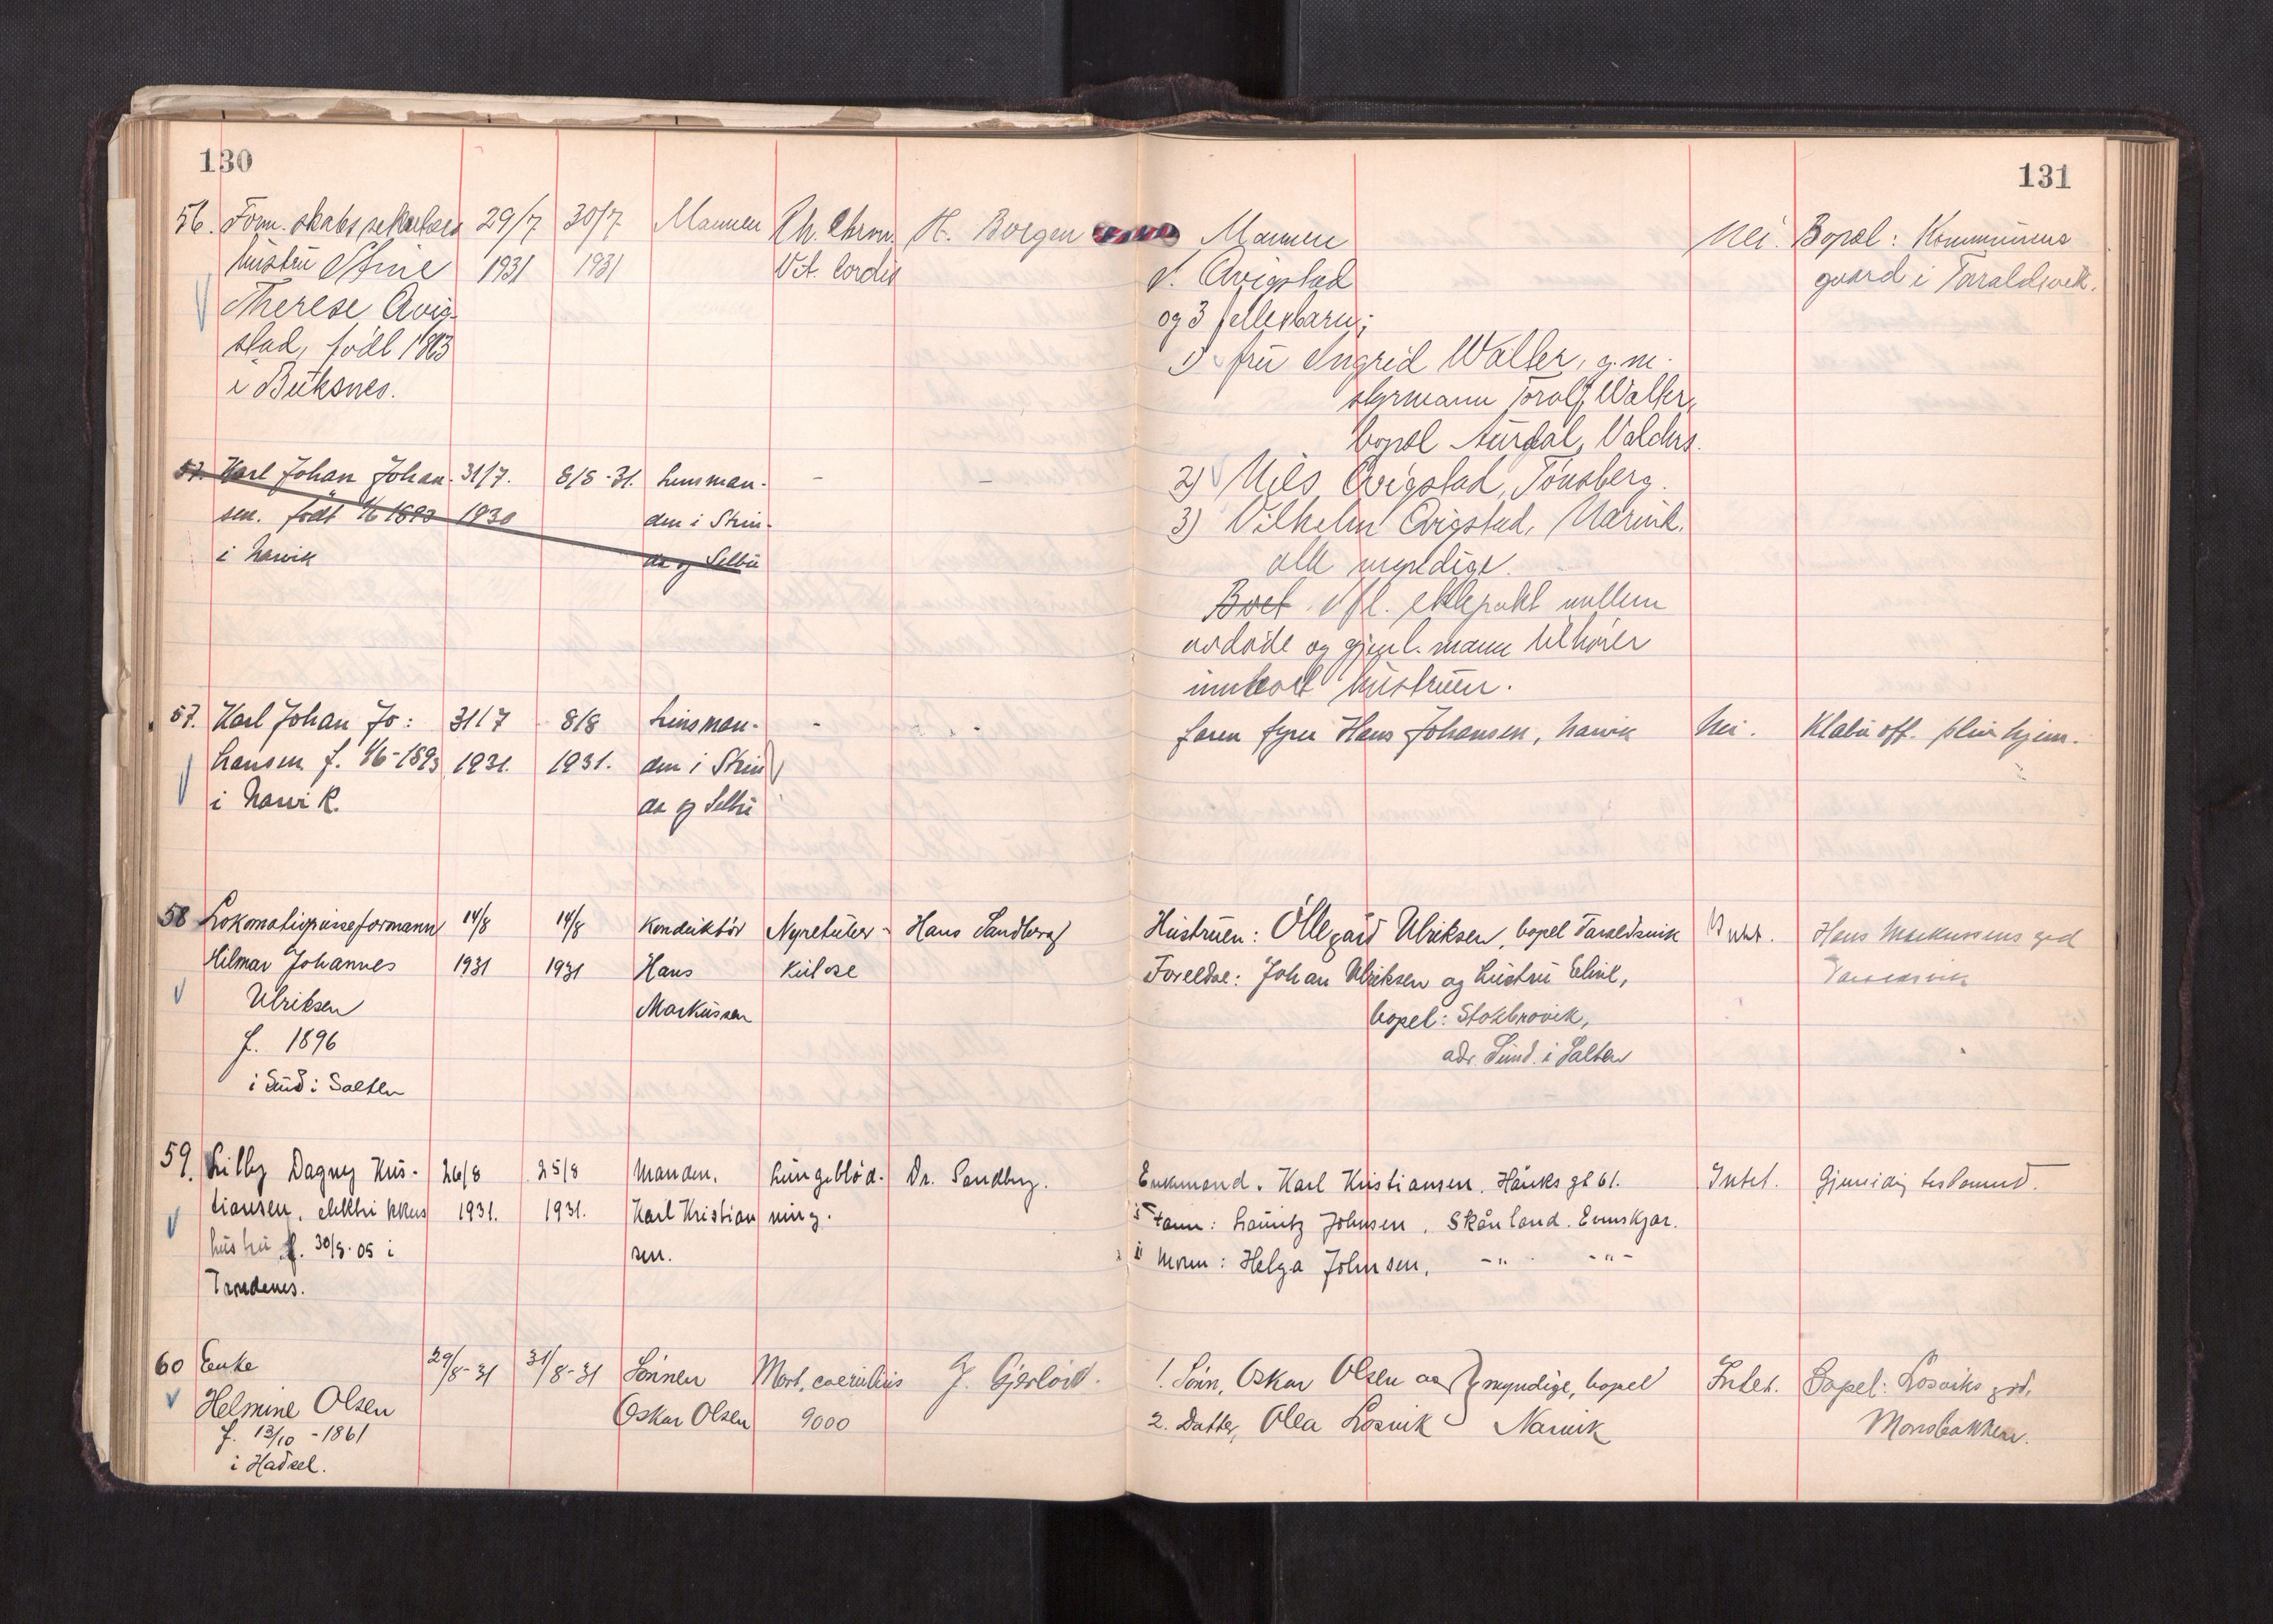 130
56. Form.skabs sekretær
hustru Stine
Therese Qvig-
stad, född 1863
i Buksnes.
29/7
1931
30/7
1931
Mannen
Rh. Chron.
Vit. Cordis
H. Borgen
57. Karl Johan Johan-
sen. født 1/6 1893
i Narvik
31/7.
1930
8/8-31.
Lensman-
den i Strin-
da og Selbu
-
-
57. Karl Johan Jo:
hansen f. 1/6-1893
i Narvik.
31/7
1931.
8/8
1931.
Lensman-
den i Strin
da og Selbu
-
58 Lokomotivpusseformann
Hilmar Johannes
Ulriksen
f. 1896
i Sund i Salten
14/8
1931
14/8
1931
Konduktör
Hans
Markussen
Nyretuber-
kulose
Hans Sandberg
59. Lilly Dagny Kris-
tiansen, elektrikkers
hustru f. 30/8.05 i
Trondenes.
26/8
1931.
25/8
1931.
Manden.
Karl Kristian
sen.
Lungeblöd-
ning.
Dr. Sandberg.
60 Enke
Helmine Olsen
f. 13/10 - 1861
i Hadsel.
29/8-31
31/8-31
Sönnen
Oskar Olsen
Morb. coeruleus
9000
J. Gjerlöv.
131
Mannen
Qvigstad
og 3 fellesbarn;
1) fru Ingrid Walter, g.m.
styrmann Torolf Walter,
bopæl Aurdal, Valdres.
2) Nils Qvigstad, Tönsberg.
3) Vilhelm Qvigstad, Narvik.
alle myndige.
Boet ifl. ektepakt mellem
avdöde og gjenl. mann tilhörer
innboet hustruen.
Nei.
Bopæl: Kommunens
gaard i Taraldsvik.
faren fyrer Hans Johansen, Narvik
Nei.
Klæbu off. pleiehjem.
Hustruen: Ollegård Ulriksen, bopel Taraldsvik
Foreldre: Johan Ulriksen og hustru Eline,
bopel: Stokbrovik,
adr. Sund i Salten
Intet.
Hans Markussens grd
Taraldsvik
Enkemand. Karl Kristiansen. Håriks gt 61.
Faren: Lauritz Johnsen, Skånland. Evenskjær.
Moren: Helga Johnsen, -"- -"-
Intet.
Gjensidig testament.
1. Sönn, Oskar Olsen og } myndige, bopel
2. Datter, Olea Losvik Narvik
Intet.
Bopel: Losviks grd,
Mosebakken.